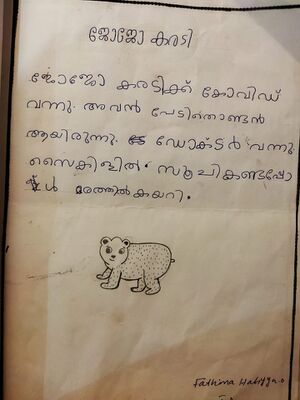 ജോജോ കരടി
ജോജോ കരടിക്ക് കോവിഡ്
വന്നു. അവൻ പേടിതൊണ്ടൻ
ആയിരുന്നു. ഡോക്ടർ വന്നു
സൈക്കിളിൽ. സൂചികണ്ടപ്പോ
ൾ മരത്തിൽകയറി.
Fathima